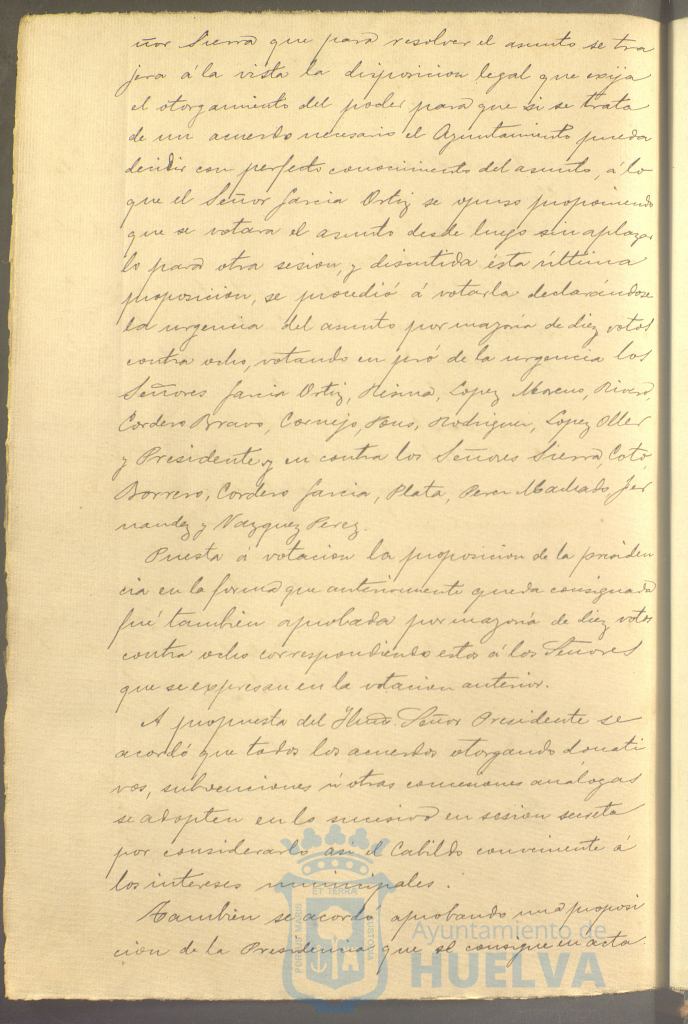 ñor Sierra que para resolver el asunto se tra
jera á la vista la disposicion legal que exija
el otorgamiento del poder para que si se trata
de un acuerdo necesario el Ayuntamiento pueda
decidir con perfecto conocimiento del asunto, á lo
que el Señor Garcia Ortiz se opuso proponiendo
que se votara el asunto desde luego sin aplazar
lo para otra sesion, y discutida ésta última
proposicion, se procedió á votarla declarándose
la urgencia del asunto por mayoria de diez votos
contra ocho, votando en pró de la urgencia los
Señores Garcia Ortiz, Lopez Moreno, Rivero,
Cordero Bravo, Cornejo, Rodriguez, Lopez Oller
y Presidente, y en contra los Señores Sierra, Coto,
Borrero, Cordero Garcia, Plata, Perez Machado, Fer
nandez y Vazquez Perez.
Puesta á votacion la proposicion de la presiden
cia en la forma que anteriormente queda consignada
fué tambien aprobada por mayoria de diez votos
contra ocho correspondiendo estos á los Señores
que se expresan en la votacion anterior.
A propuesta del Iltmo. Señor Presidente se
acordó que todos los acuerdos otorgando donati
vos, subvenciones ú otras concesiones análogas
se adopten en lo sucesivo en sesion secreta
por considerarlo asi el Cabildo conveniente á
los intereses municipales.
Tambien se acordó aprobando una proposi
cion de la Presidencia que se consigne en acta
Ayuntamiento de
HUELVA